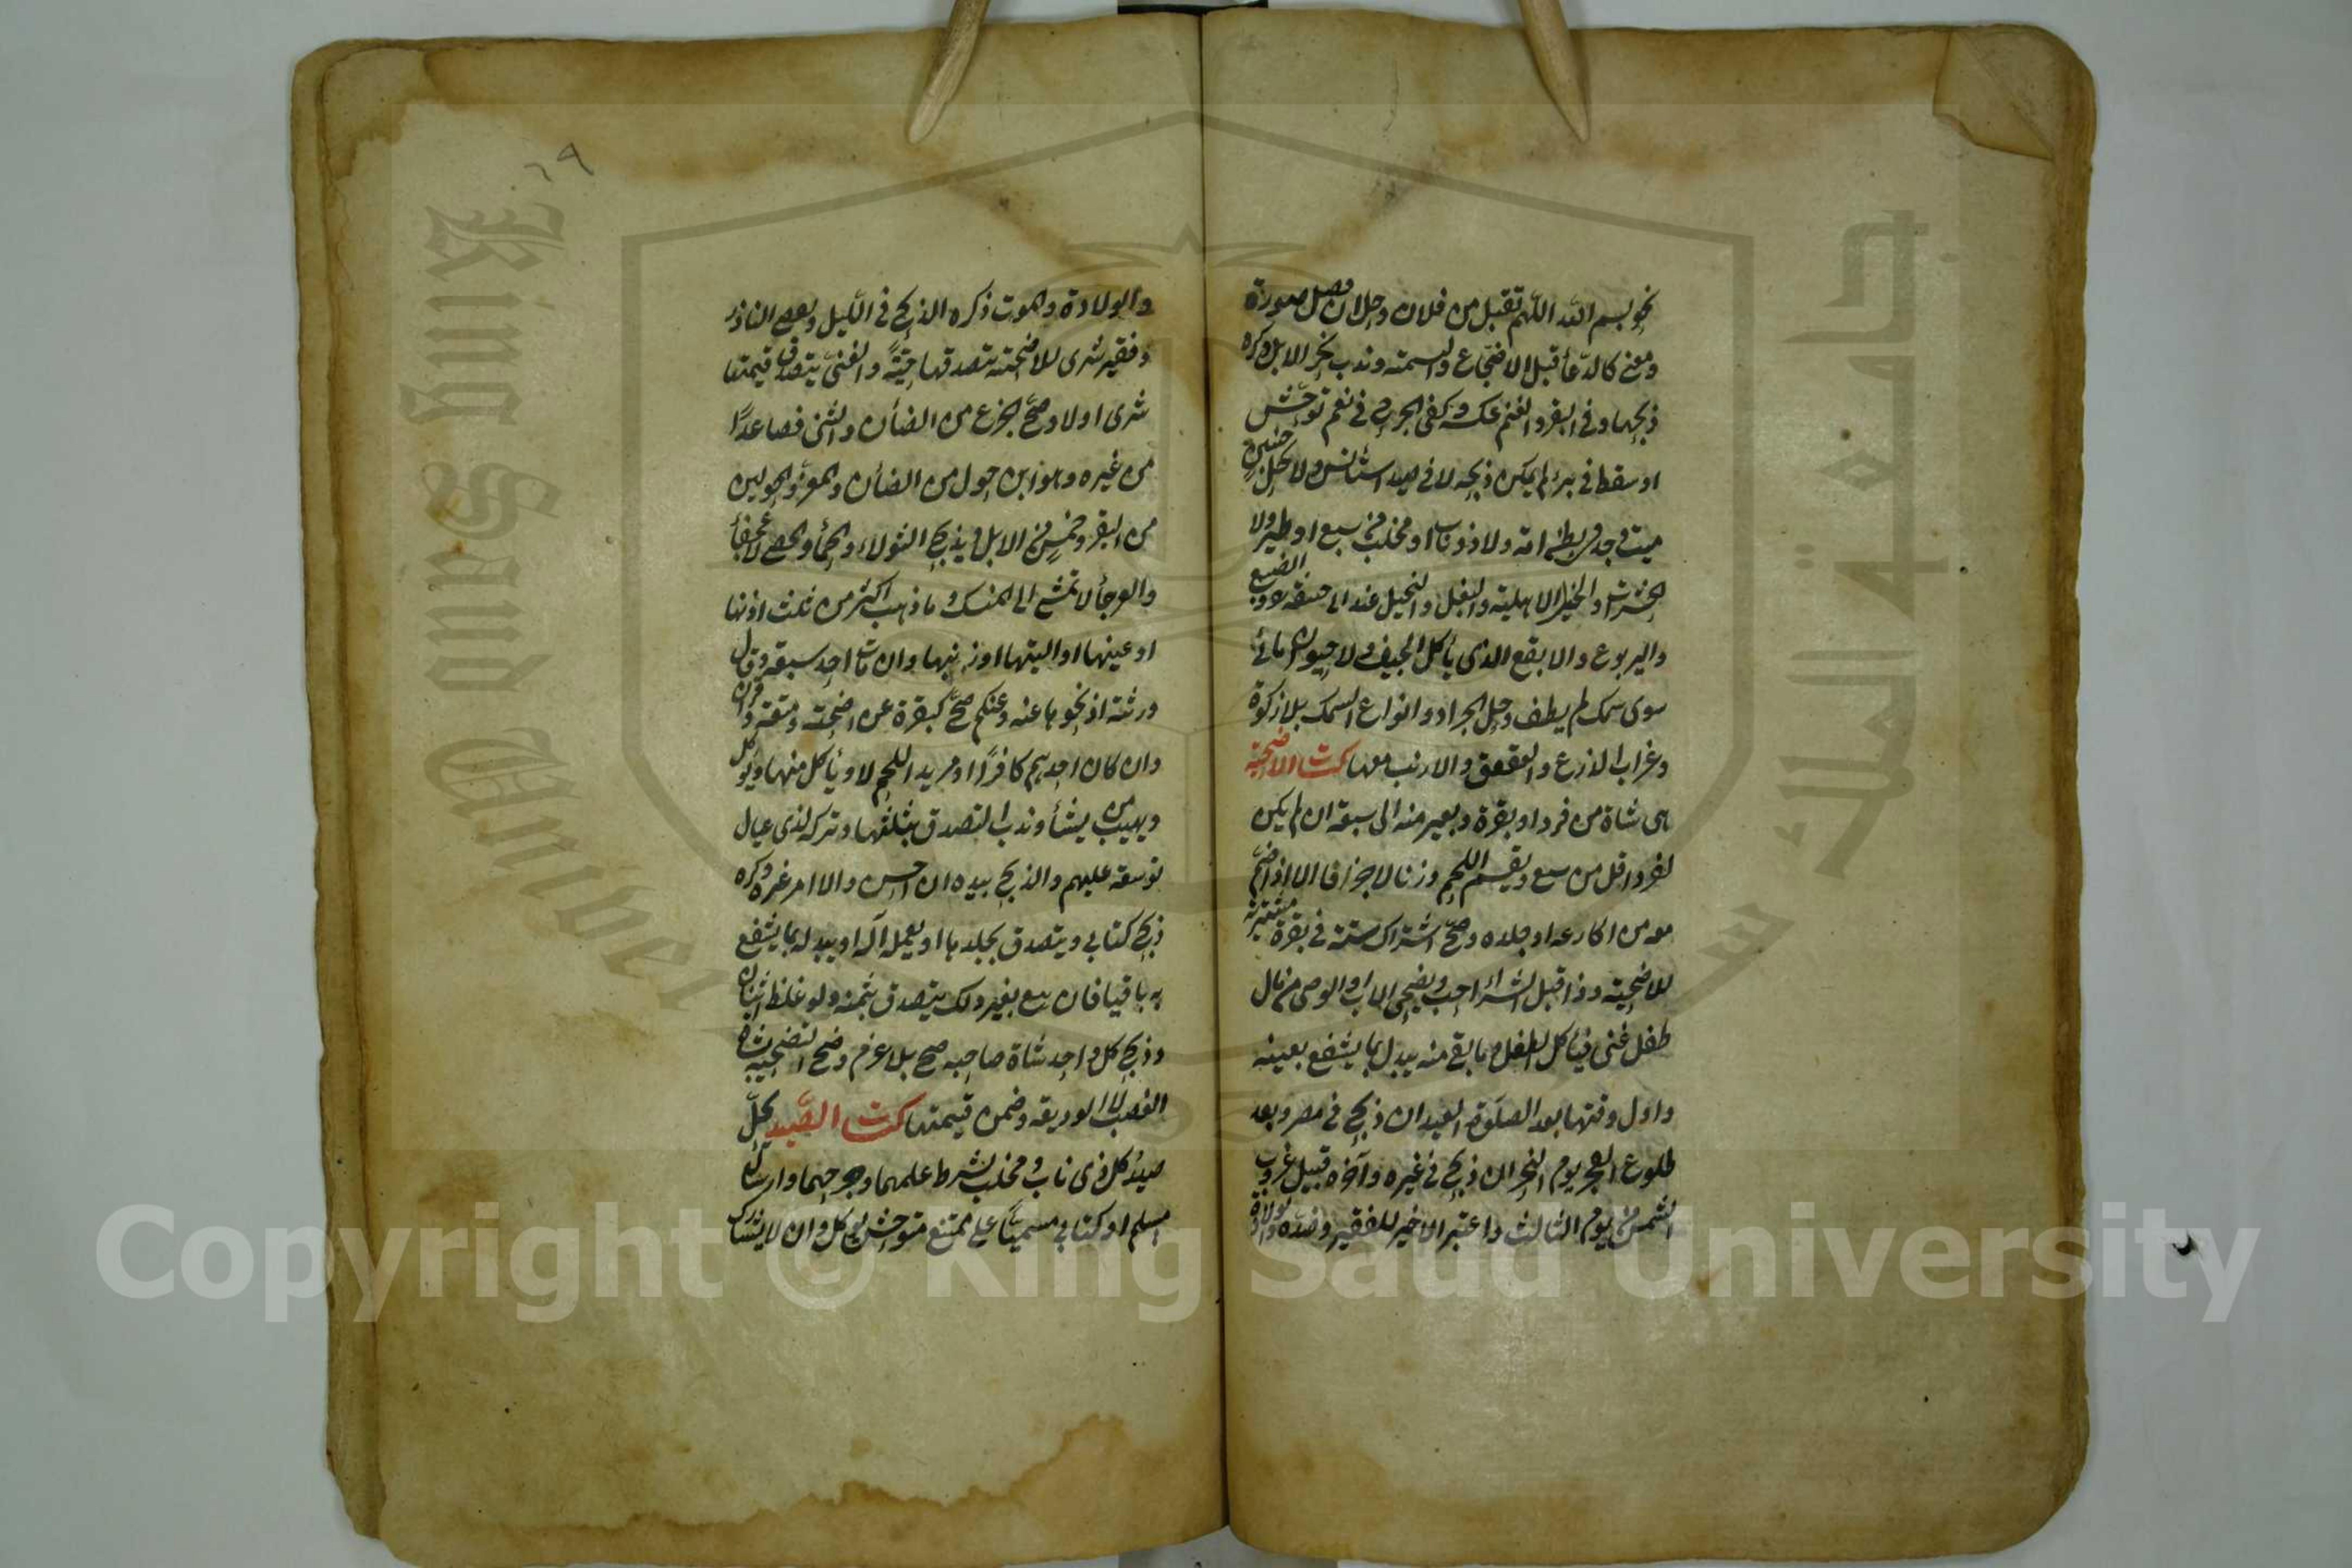 نحو بسم الله اللهم تقبل من فلان وحل ان فصل صورة
ومعنى كالدعأ قبل الاضجاع والتسمية وندب نحر الابل وكره
ذبحها وفي البقر والغنم عكسه وكفى الجرح في نعم توحش
او سقط في بئر لم يمكن ذبحه لا في صيد استأنس ولا يحل جنين
ميت وجد في بطن امه ولا ذو ناب او مخلب من سبع او طير ولا
الحشرات والحمر الاهلية والبغل والخيل عند ابي حنيفة رح والضبع
واليربوع والابقع الذي يأكل الجيف ولا حيوان مائي
سوى سمك لم يطف وحل الجراد وانواع السمك بلا زكوة
وغراب الذرع والعقعق والارنب معها كتاب الاضحية
هى شاة من فرد او بقرة وبعير منه الى سبعة ان لم يكن
لفرد اقل من سبع ويقسم اللحم وزنا لا جزافا الا اذا ضم
معه من اكارعه او جلده وصح اشتراك ستة في بقرة مشترية
للاضحية وذا قبل الشرا احب ويضحي الاب او الوصى من مال
طفل غنى فيأكل الطفل وما بقى منه يبدل بما ينتفع بعينه
واول وقتها بعد الصلوة العيد ان ذبح في مصر وبعد
طلوع الفجر يوم النحر ان ذبح في غيره وآخره قبيل غروب
الشمس من يوم الثالث واعتبر الاخير للفقير وضده
٦٩
والولادة والموت وكره الذبح في الليل وبعض الناذر
وفقير شرى للاضحية يتصدقها حيّة والغنى يتصدق قيمتها
شرى او لا وصح الجزع من الضأن والثنى فصاعدًا
من غيره وهو ابن حول من الضأن والمعز والحولين
من البقر وخمس من الابل ويذبح الثولاء والجمأ والخصي لا العجفأ
والعرجأ لا تمشي الى المنسك وما ذهب اكثر من ثلث اذنها
او عينها او اليتها او ذنبها وان مات احد سبعة وقال
ورثته اذبحوها عنه وعنكم صح كبقرة عن اضحية ومتعة وقران
وان كان احدهم كافرًا او مريد اللحم لا ويأكل منها ويوكل
ويهب من يشأ وندب التصدق بثلثها وتركه لذى عيال
توسعة عليهم والذبح بيده ان احسن والا امر غيره وكره
ذبح كتابي ويتصدق بجلدها او يعمله آلة او يبدله بما ينتفع
به باقيا فان بيع بغير ذلك يتصدق بثمنه ولو غلط اثنان
وذبح كل واحد شاة صاحبه صح بلا غرم وصح التضحية بشاة
الغصب لا الوديعة وضمن قيمتها كتاب الصيد يحل
صيد كل ذى ناب ومخلب بشرط علمهما وجرحهما وارسال
مسلم او كتابي مسميًا على ممتنع متوحش يوكل وان لا يشارك
King Saud University
جامعة الملك سعود
Copyright © King Saud University